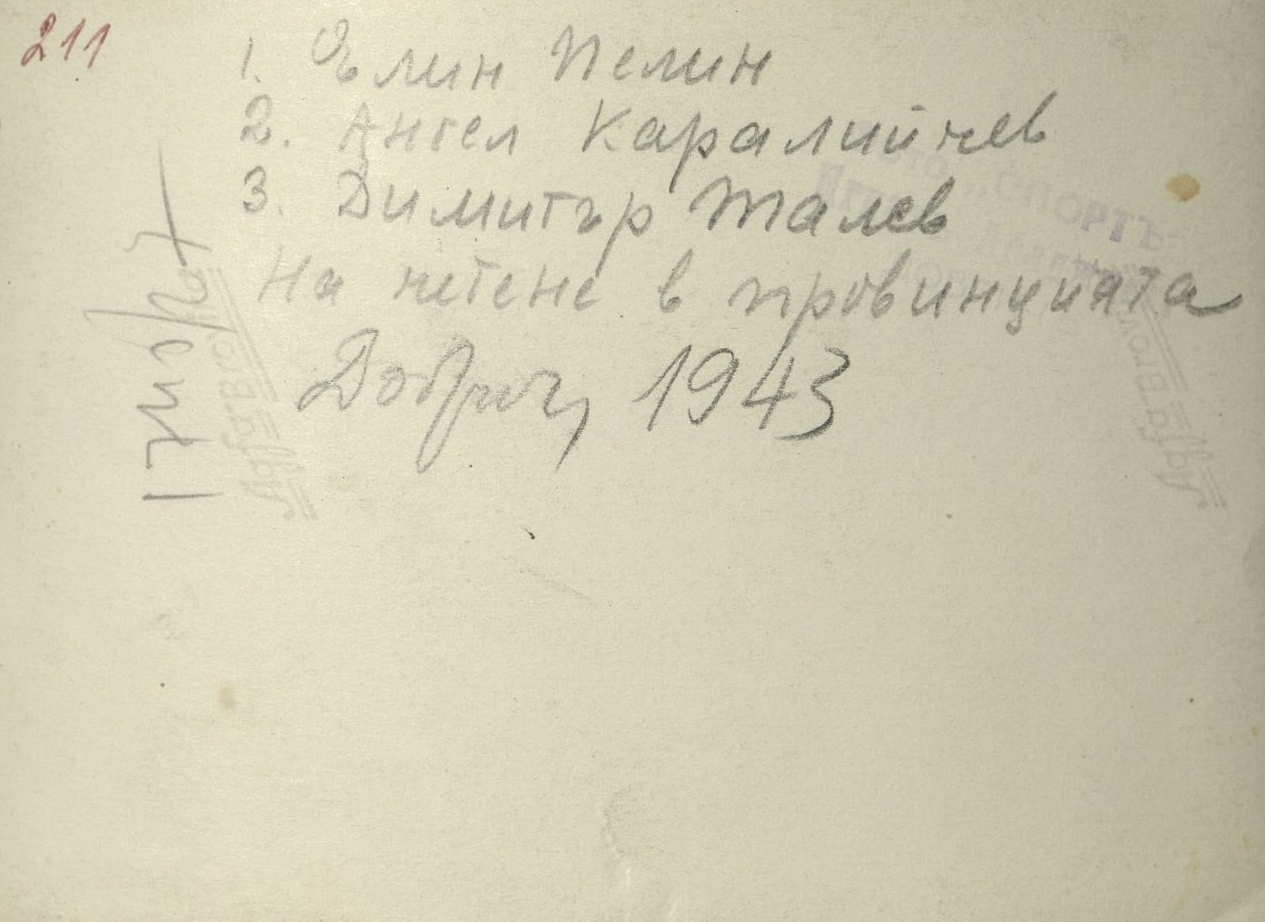 211
1. Елин Пелин
2. Ангел Каралийчев
3. Димитър Талев
На четене в провинцията
Добрич, 1943
"СПОРТЪ